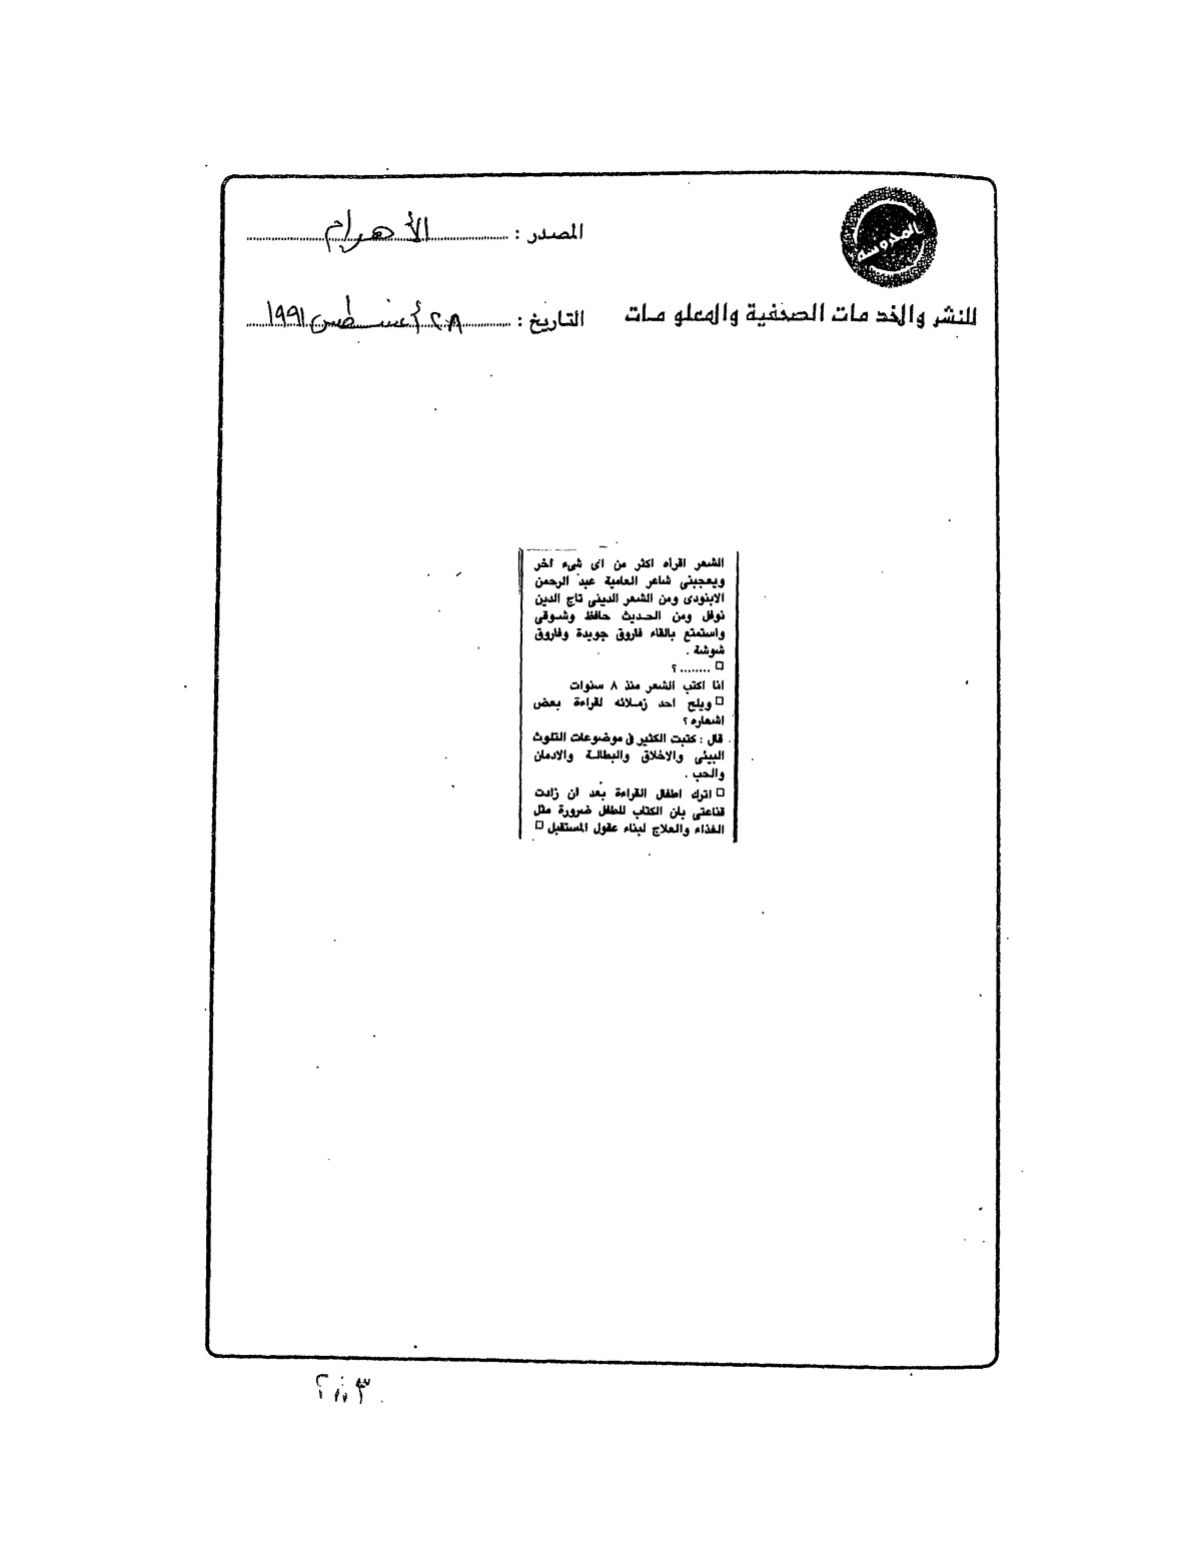 المحروسة
المصدر : الأهرام
للنشر والخدمات الصحفية والمعلومات
التاريخ : ٢٨ أغسطس ١٩٩١
الشعر اقرأه اكثر من اى شىء آخر
ويعجبنى شاعر العامية عبد الرحمن
الابنودى ومن الشعر الدينى تاج الدين
نوفل ومن الحديث حافظ وشوقى
واستمتع بالقاء فاروق جويدة وفاروق
شوشة .
□ ........ ؟
انا اكتب الشعر منذ ٨ سنوات
□ ويلح احد زملائه لقراءة بعض
اشعاره ؟
قال : كتبت الكثير فى موضوعات التلوث
البيئى والاخلاق والبطالة والادمان
والحب .
□ اترك اطفال القراءة بعد ان زادت
قناعتى بان الكتاب للطفل ضرورة مثل
الغذاء والعلاج لبناء عقول المستقبل □